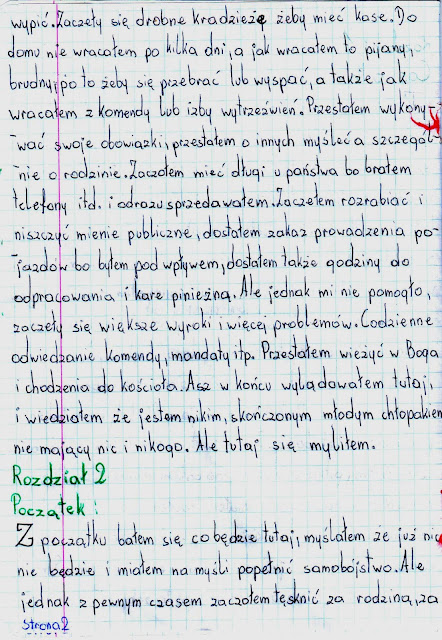 wypić. Zaczeły się drobne kradzieże żeby mieć kase. Do
domu nie wracałem po kilka dni, a jak wracałem to pijany,
brudny, po to żeby się przebrać lub wyspać, a także jak
wracałem z komendy lub izby wytrzeźwień. Przestałem wykony-
-wać swoje obowiązki, przestałem o innych myśleć a szczegól-
-nie o rodzinie. Zaczołem mieć długi u państwa bo brałem
telefony itd. i odrazu sprzedawałem. Zaczełem rozrabiać i
niszczyć mienie publiczne, dostałem zakaz prowadzenia po-
-jazdów bo byłem pod wpływem, dostałem także godziny do
odpracowania i kare pinieżną. Ale jednak mi nie pomogło,
zaczeły się większe wyroki i więcej problemów. Codzienne
odwiedzanie komendy, mandaty itp. Przestałem wieżyć w Boga
i chodzenia do kościoła. Asz w końcu wylądowałem tutaj,
i wiedziałem że jestem nikim, skończonym młodym chłopakiem
nie mający nic i nikogo. Ale tutaj się myliłem.
Rozdział 2
Początek :
Z początku bałem się co będzie tutaj, myślałem że już nic
nie będzie i miałem na myśli popełnić samobójstwo. Ale
jednak z pewnym czasem zaczołem tęsknić za rodziną, za
Strona 2